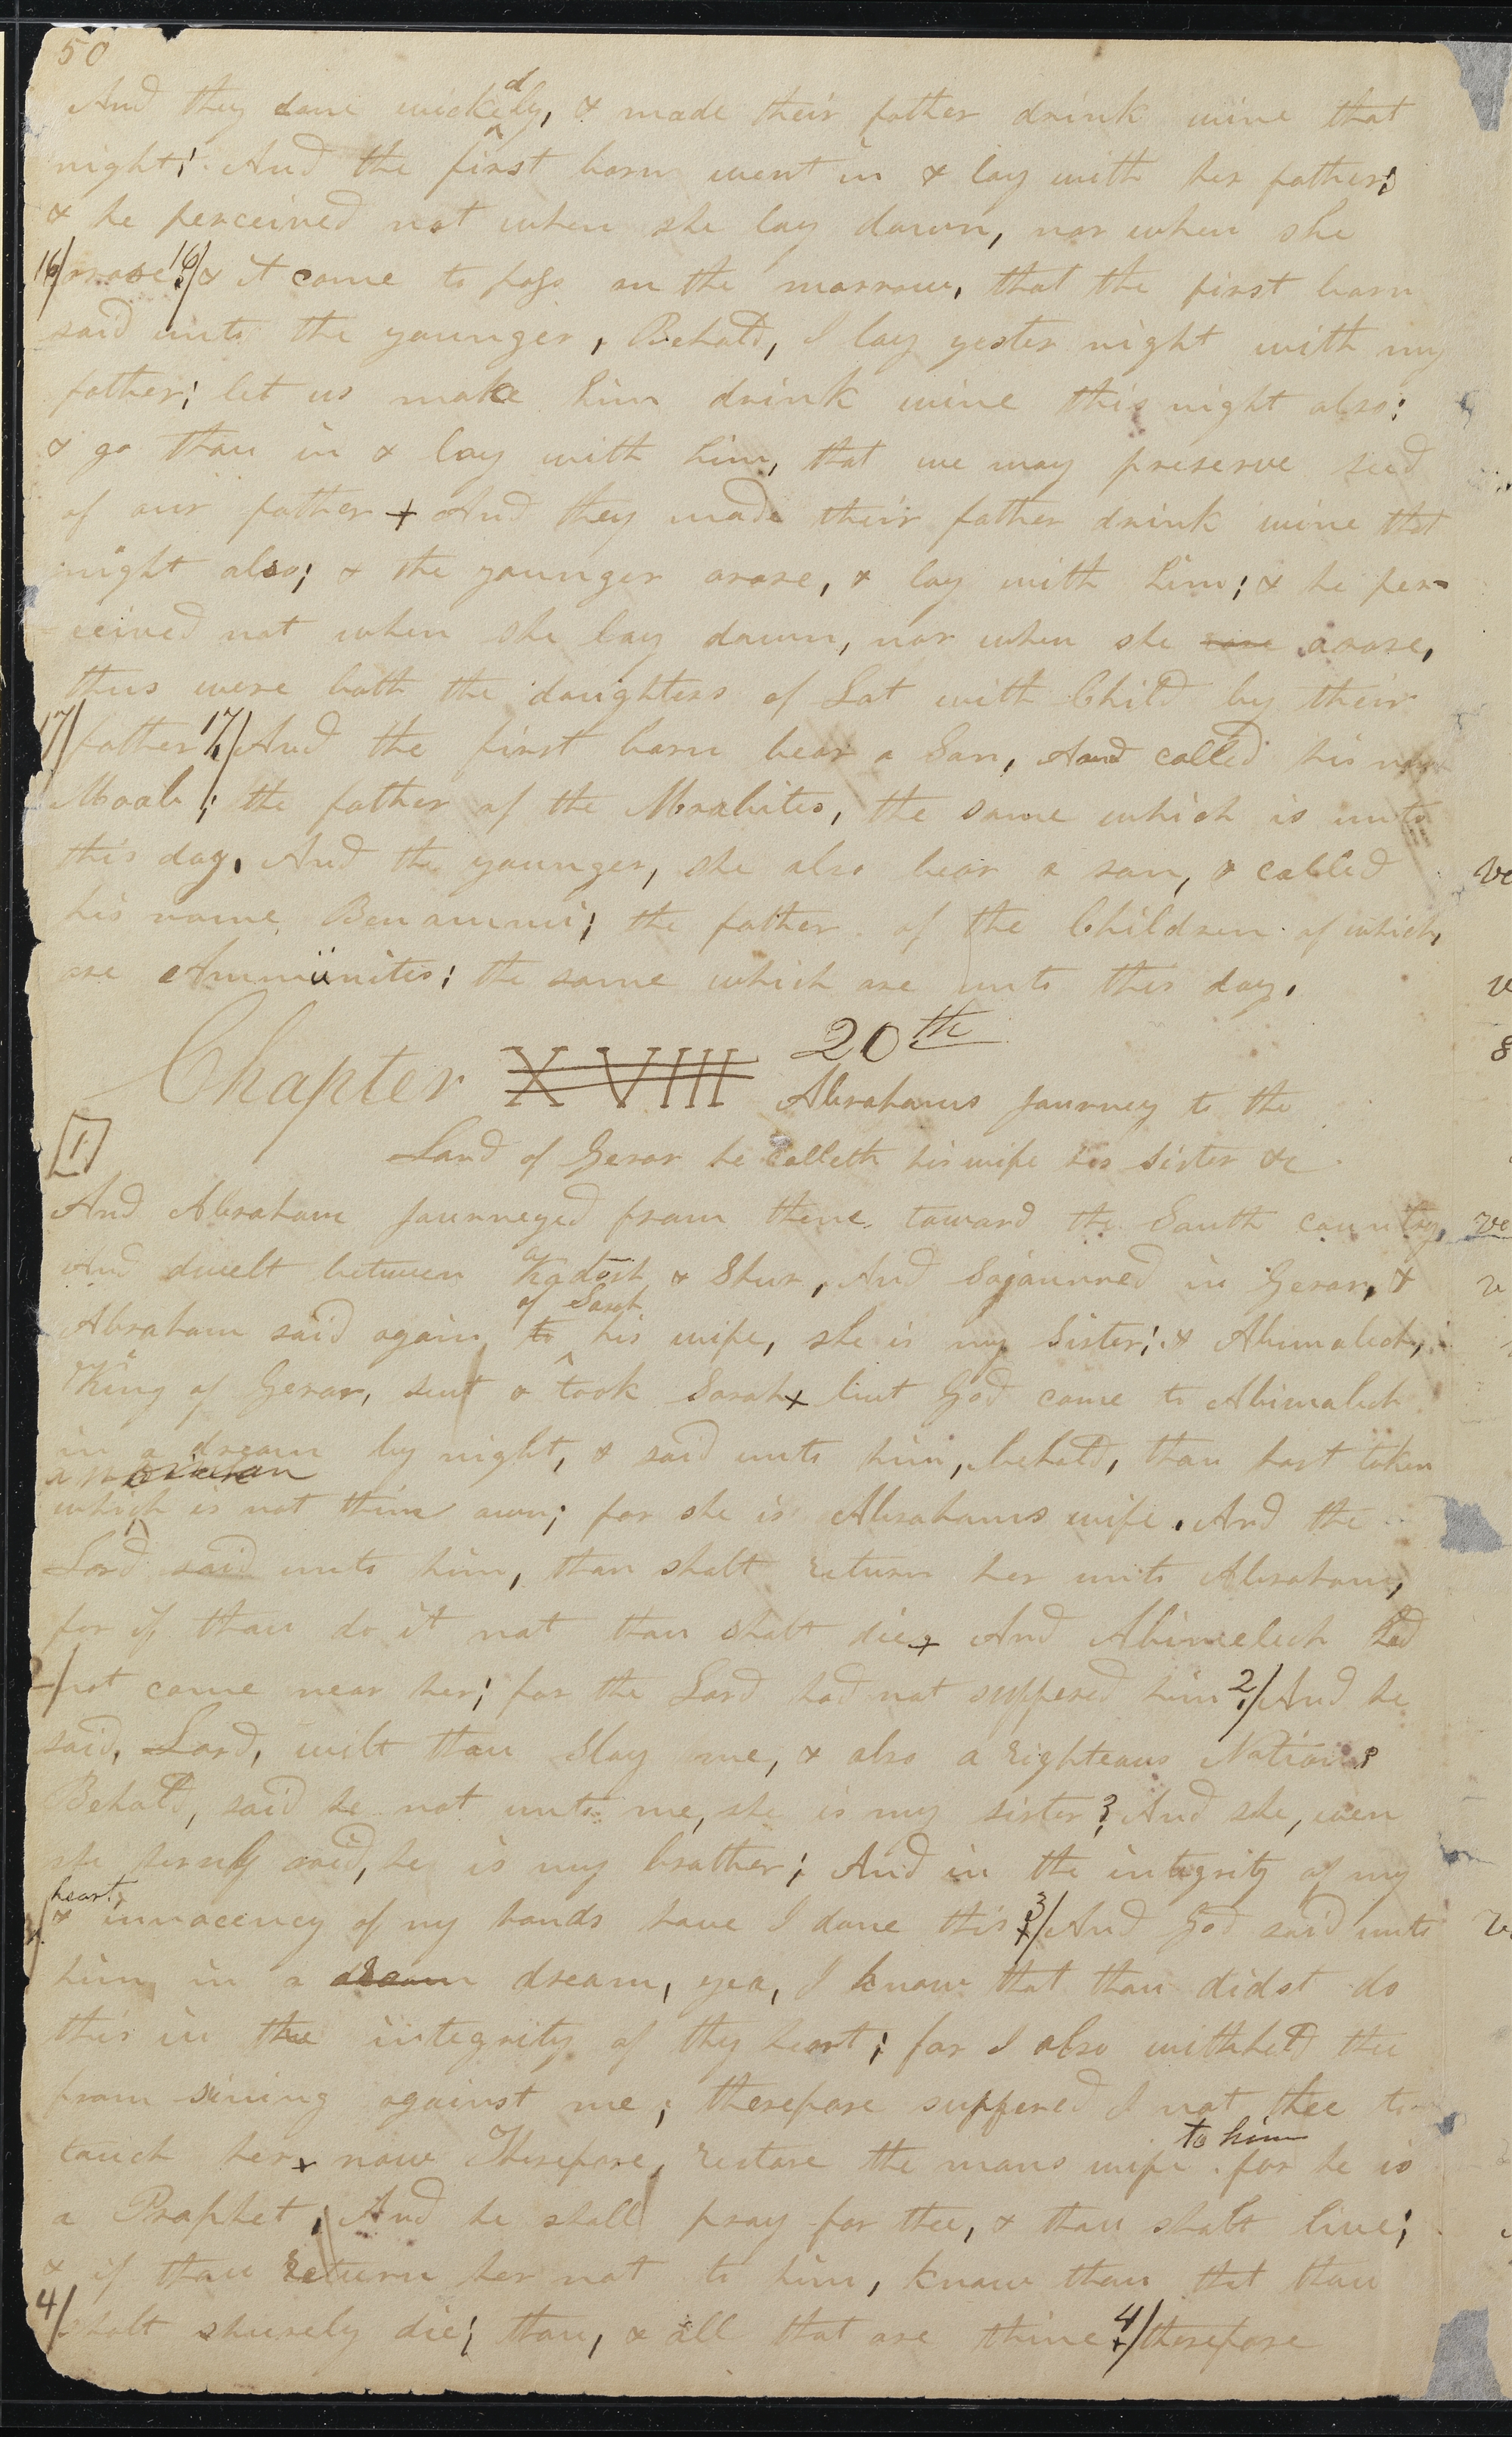 50
And they done wickedly, & made their father drink wine that
night; And the first born went in & lay with her father;
& he perceived not when she lay down, nor when she
16/ arose 16/ & it came to pass on the morrow, that the first born
said unto the younger, Behold, I lay yester night with my
father; let us make him drink wine this night also;
& go thou in & lay with him, that we may preserve seed
of our father + And they made their father drink wine that
night also; & the younger arose, & lay with him; & he per-
ceived not when she lay down, nor when she rose arose,
thus were both the daughters of Lot with Child by their
17/ father 17/ And the first born bear a Son, And called his name
Moab; the father of the Moabites, the same which is unto
this day. And the younger, she also bear a son, & called
his name Benammi; the father of the Children of which
are Ammonites; the same which are unto this day.
Chapter XVIII 20th
Abrahams journey to the
[1]
Land of Gerar he calleth his wife his Sister &c
And Abraham journeyed from thence toward the South country,
And dwelt between Kadesh & Shur, And Sojourned in Gerar, &
of Sarah
Abraham said again to his wife, she is my Sister; & Abimalech,
King of Gerar, sent & took Sarah + but God came to Abimalech
in a dream by night, & said unto him, behold, thou hast taken
a woman
which is not thine own; for she is Abrahams wife. And the
Lord said unto him, thou shalt return her unto Abraham,
for if thou do it not thou shalt die + And Abimelech had
not come near her; for the Lord had not suffered him 2/ And he
said, Lord, wilt thou Slay me, & also a righteous Nation?
Behold, said he not unto me, she is my sister? And she, even
she herself said, he is my brother; And in the integrity of my
heart,
3/ & innocency of my hands have I done this 3/ And God said unto
him in a dream dream, yea, I know that thou didst do
this in the integrity of thy heart; for I also withheld thee
from sining against me; therefore suffered I not thee to
to him
touch her + now Therefore, restore the mans wife for he is
a Prophet; And he shall pray for thee, & thou shalt live;
& if thou Return her not to him, know thou that thou
4/ shalt shurely die; thou, & all that are thine 4/ therefore